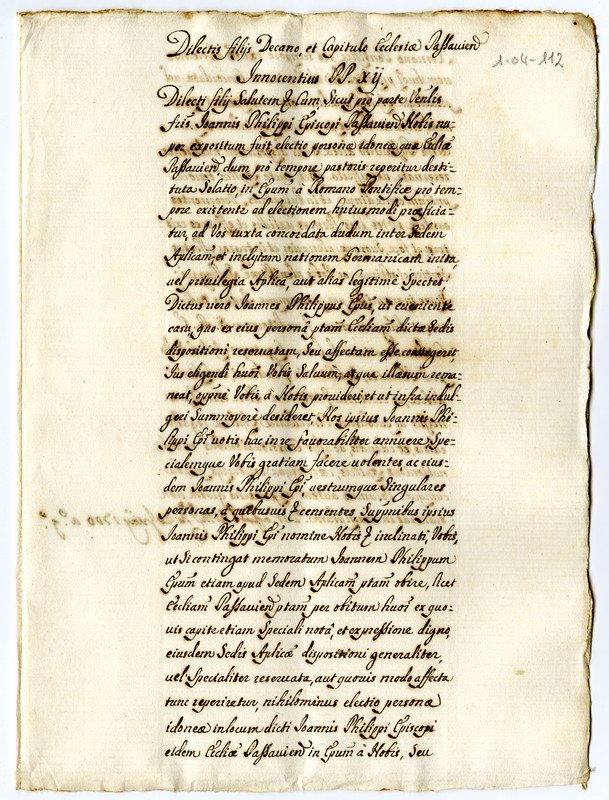 Dilectis filijs Decano, et Capitulo Ecclesiæ Passavien
1-04-112
Innocentius PP. xij.
Dilecti filij Salutem &. Cum, Sicut pro parte Ven̄lis
fr̄is Ioannis Philippi Episcopi Passavien Nobis nu-
per expositum fuit, electio personæ idoneæ quæ Ecc̄liæ
Passavien, dum pro tempore pastoris reperitur desti-
tuta Solatio, in Ep̄um à Romano Pontifice pro tem-
pore existente ad electionem huiusmodi præficia-
tur, ad Vos iuxta concordata dudum inter Sedem
Aplicam, et inclytam nationem Germanicam inita,
vel privilegia Aplica, aut alias legitimè Spectet;
Dictus verò Ioannes Philippus Ep̄us, ut eveniente
casu, quo ex eius persona p̄tam Ecc̄liam dictæ Sedis
dispositioni reservatam, Seu affectam esse contigerit
Ius eligendi huōi Vobis Salvum, atque illæsum rema-
neat, opp̄nè Vobis, à Nobis provideri, et ut infra indul-
geri Summoperè desideret, Nos ipsius Ioannis Phi-
lippi Ep̄i votis hac in re favorabiliter annuere, Spe-
cialemque Vobis gratiam facere volentes, ac eius-
dem Ioannis Philippi Ep̄i, vestrumque Singulares
personas, à quibusvis & censentes, Supp̄nibus ipsius
Ioannis Philippi Ep̄i nomine Nobis & inclinati, Vobis,
ut Si contingat memoratum Ioannem Philippum
Ep̄um etiam apud Sedem Aplicam p̄tam obire, licet
Ecc̄liam Passavien p̄tam per obitum huōi ex quo-
vis capite etiam Speciali nota, et expressione digno,
eiusdem Sedis Aplicæ dispositioni generaliter,
vel Specialiter reservata, aut quovis modo affecta
tunc reperiretur, nihilominus electio personæ
idoneæ in locum dicti Ioannis Philippi Episcopi
eidem Ecc̄liæ Passavien in Ep̄um à Nobis, Seu